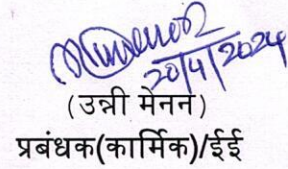 20/4/2024
(उन्नी मेनन)
प्रबंधक(कार्मिक)/ईई